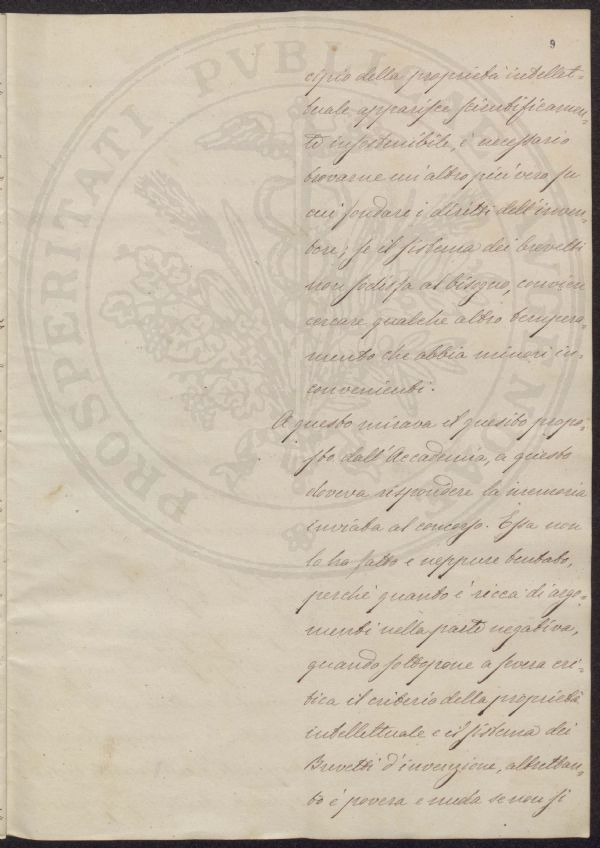 9
cipio della proprietà intellet-
tuale apparisce scientificamen-
te insostenibile, è necessario
trovarne un'altro più vero su
cui fondare i diritti dell'inven-
tore; se il sistema dei brevetti
non sodisfa al bisogno, convien
cercare qualche altro tempera-
mento che abbia minori in-
convenienti.
A questo mirava il quesito propo-
sto dall'Accademia, a questo
doveva rispondere la memoria
inviata al concorso. Essa non
lo ha fatto e neppure tentato,
perchè quanto è ricca di argo-
menti nella parte negativa,
quando sottopone a severa cri-
tica il criterio della proprietà
intellettuale e il sistema dei
Brevetti d'invenzione, altrettan-
to è povera e nuda se non si
PROSPERITATI PVBLICAE AVGENDAE